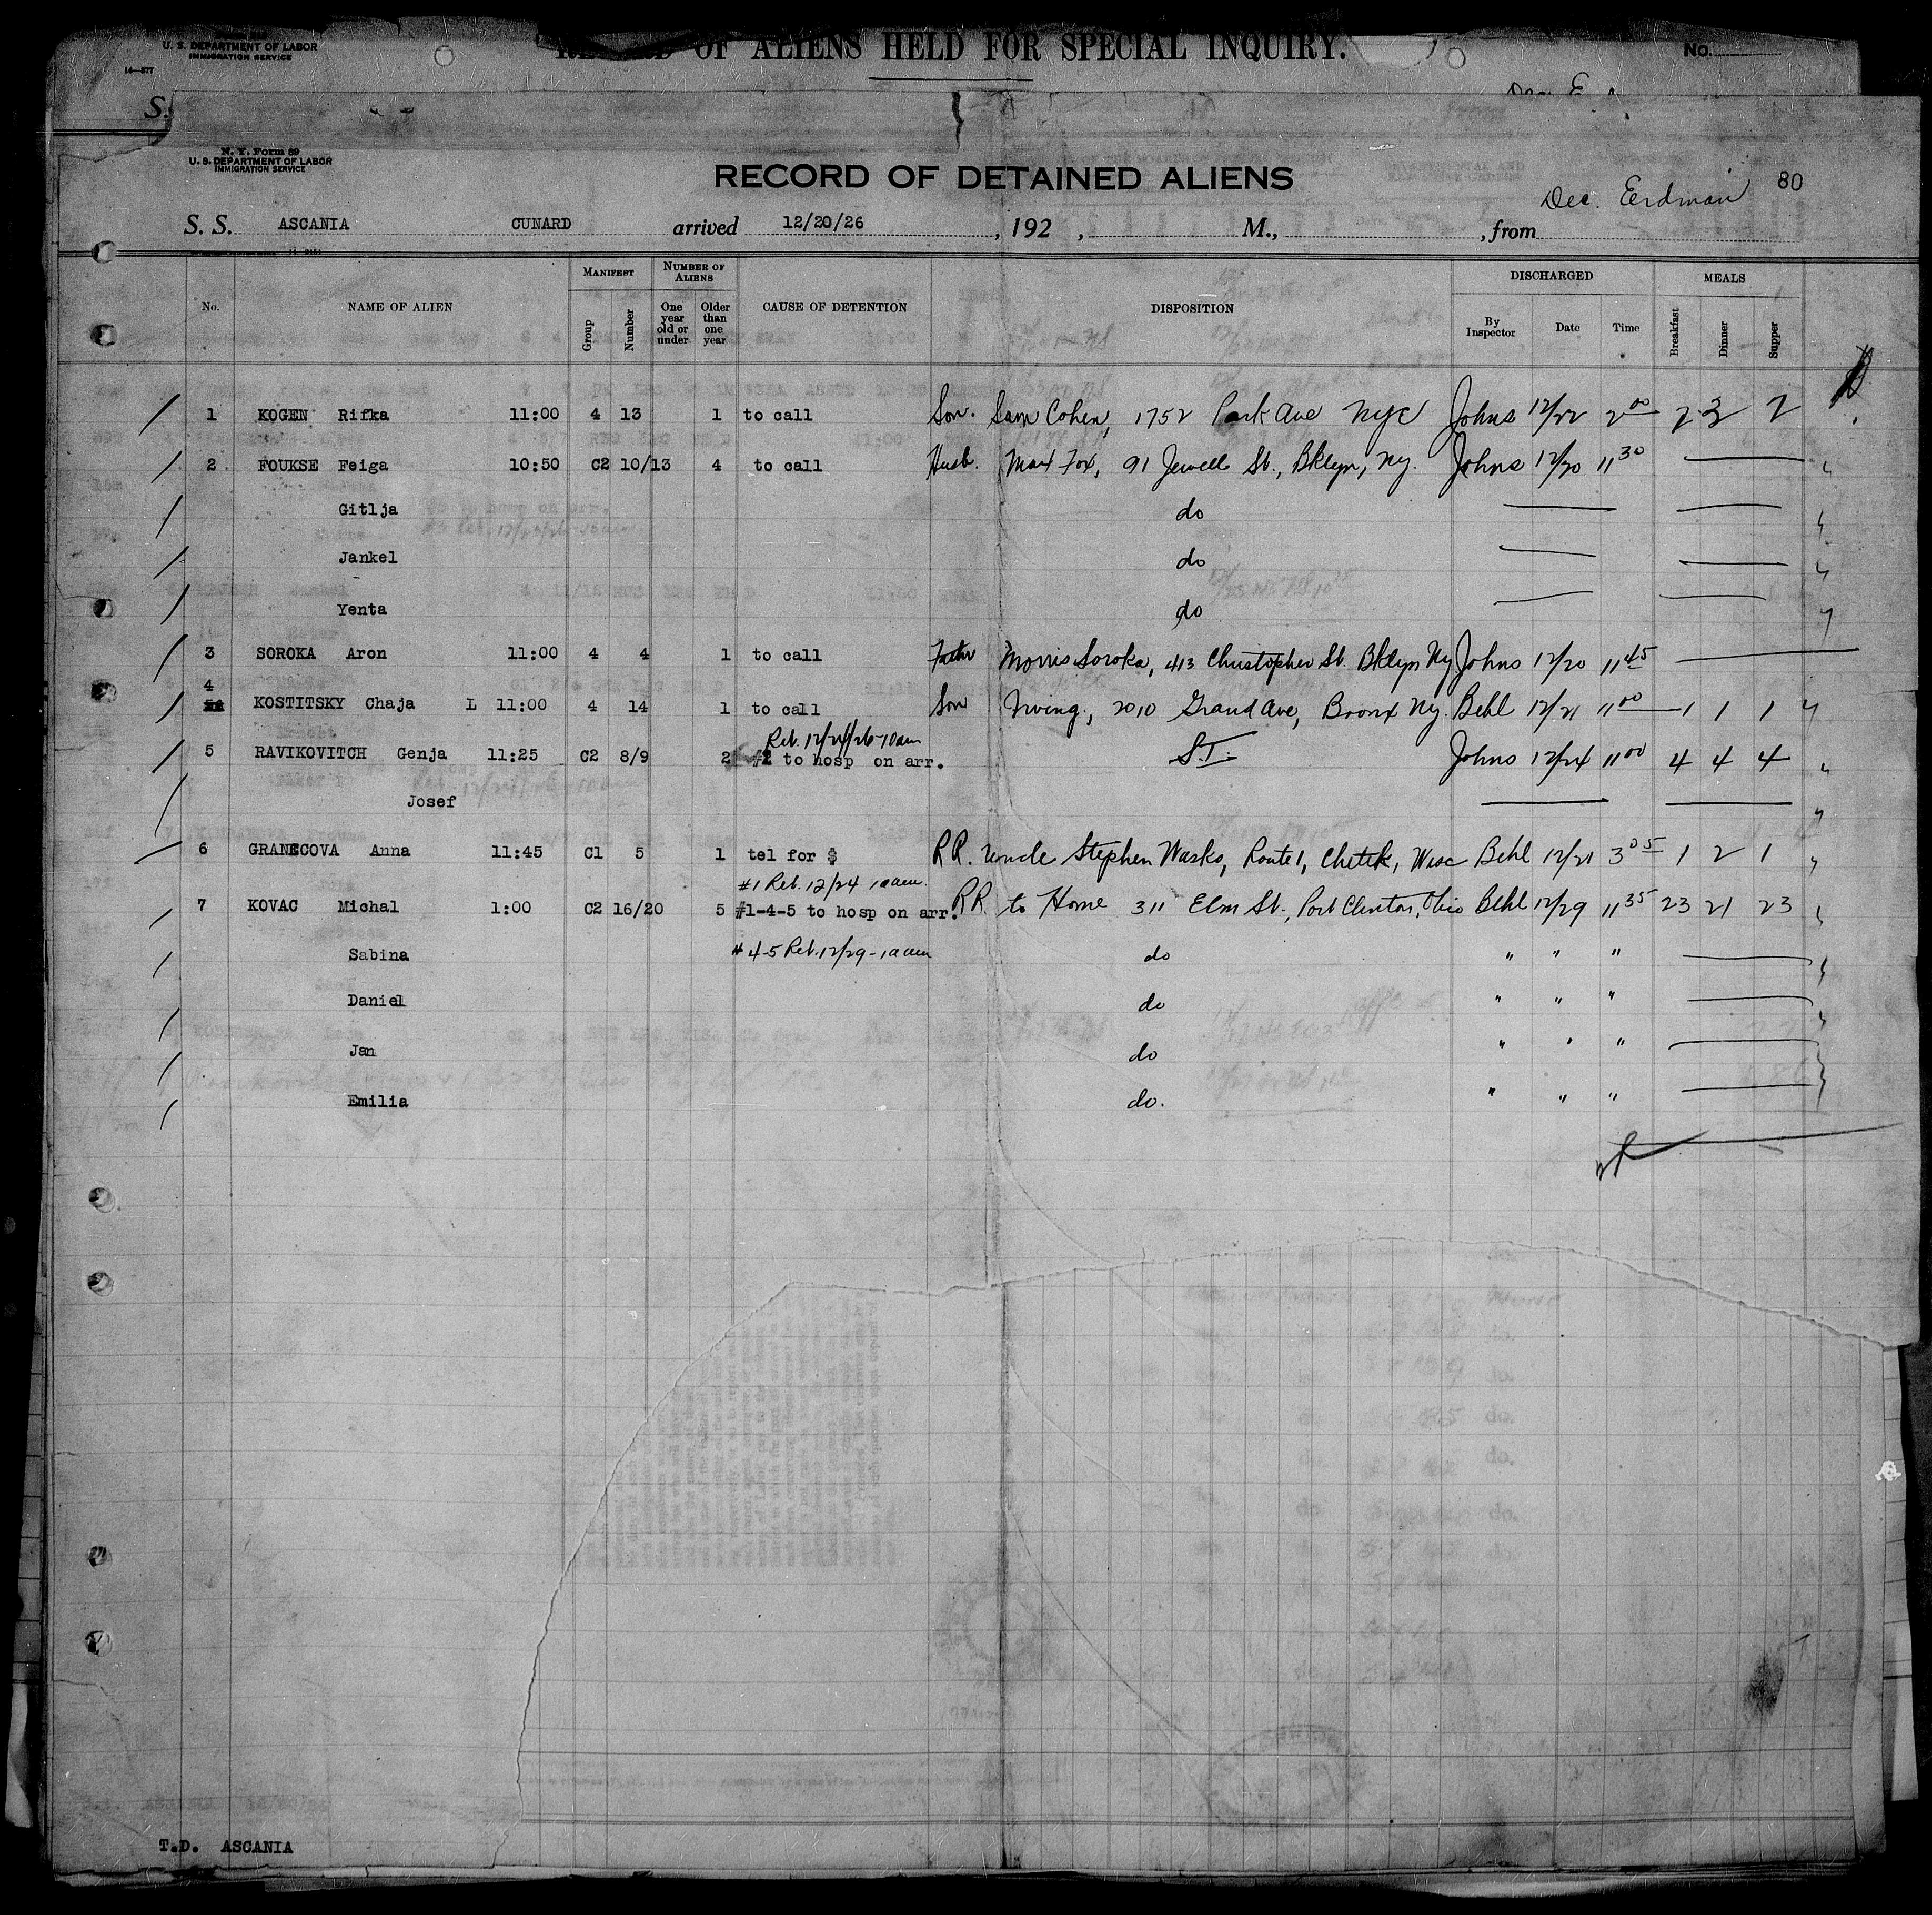 U. S. DEPARTMENT OF LABOR
IMMIGRATION SERVICE
14—377
OF ALIENS HELD FOR SPECIAL INQUIRY.
No.
S.
N. Y. Form 89
U. S. DEPARTMENT OF LABOR
IMMIGRATION SERVICE
RECORD OF DETAINED ALIENS
Dec. Erdman 80
S. S. ASCANIA CUNARD arrived 12/20/26, 192 , M., , from
No. NAME OF ALIEN MANIFEST Group Number NUMBER OF ALIENS One year old or under Older than one year CAUSE OF DETENTION DISPOSITION DISCHARGED By Inspector Date Time MEALS Breakfast Dinner Supper
1 KOGEN Rifka 11:00 4 13 1 to call Son. Sam Cohen, 1752 Park Ave NYC Johns 12/22 2 00 2 3 2
2 FOUKSE Feiga 10:50 C2 10/13 4 to call Husb. Max Fox, 91 Jewell St., Bklyn, Ny. Johns 12/20 11 30
Gitlja do
Jankel do
Yenta do
3 SOROKA Aron 11:00 4 4 1 to call Father Morris Soroka, 413 Christopher St. Bklyn Ny Johns 12/20 11 45
4 KOSTITSKY Chaja L 11:00 4 14 1 to call Son Irving, 2010 Grand Ave, Bronx Ny. Behl 12/21 11 00 1 1 1
Ret. 12/24/26-10am
5 RAVIKOVITCH Genja 11:25 C2 8/9 2 #2 to hosp on arr. S.I. Johns 12/24 11 00 4 4 4
Josef
6 GRANECOVA Anna 11:45 C1 5 1 tel for $ RR. uncle Stephen Wasko, Route 1, Chetek, Wisc Behl 12/21 3 05 1 2 1
#1 Ret. 12/24 10am.
7 KOVAC Michal 1:00 C2 16/20 5 #1-4-5 to hosp on arr. RR. to Home 311 Elm St., Port Clinton, Ohio Behl 12/29 11 35 23 21 23
Sabina #4-5 Ret. 12/29-10am do " " "
Daniel do " " "
Jan do " " "
Emilia do. " " "
T.D. ASCANIA